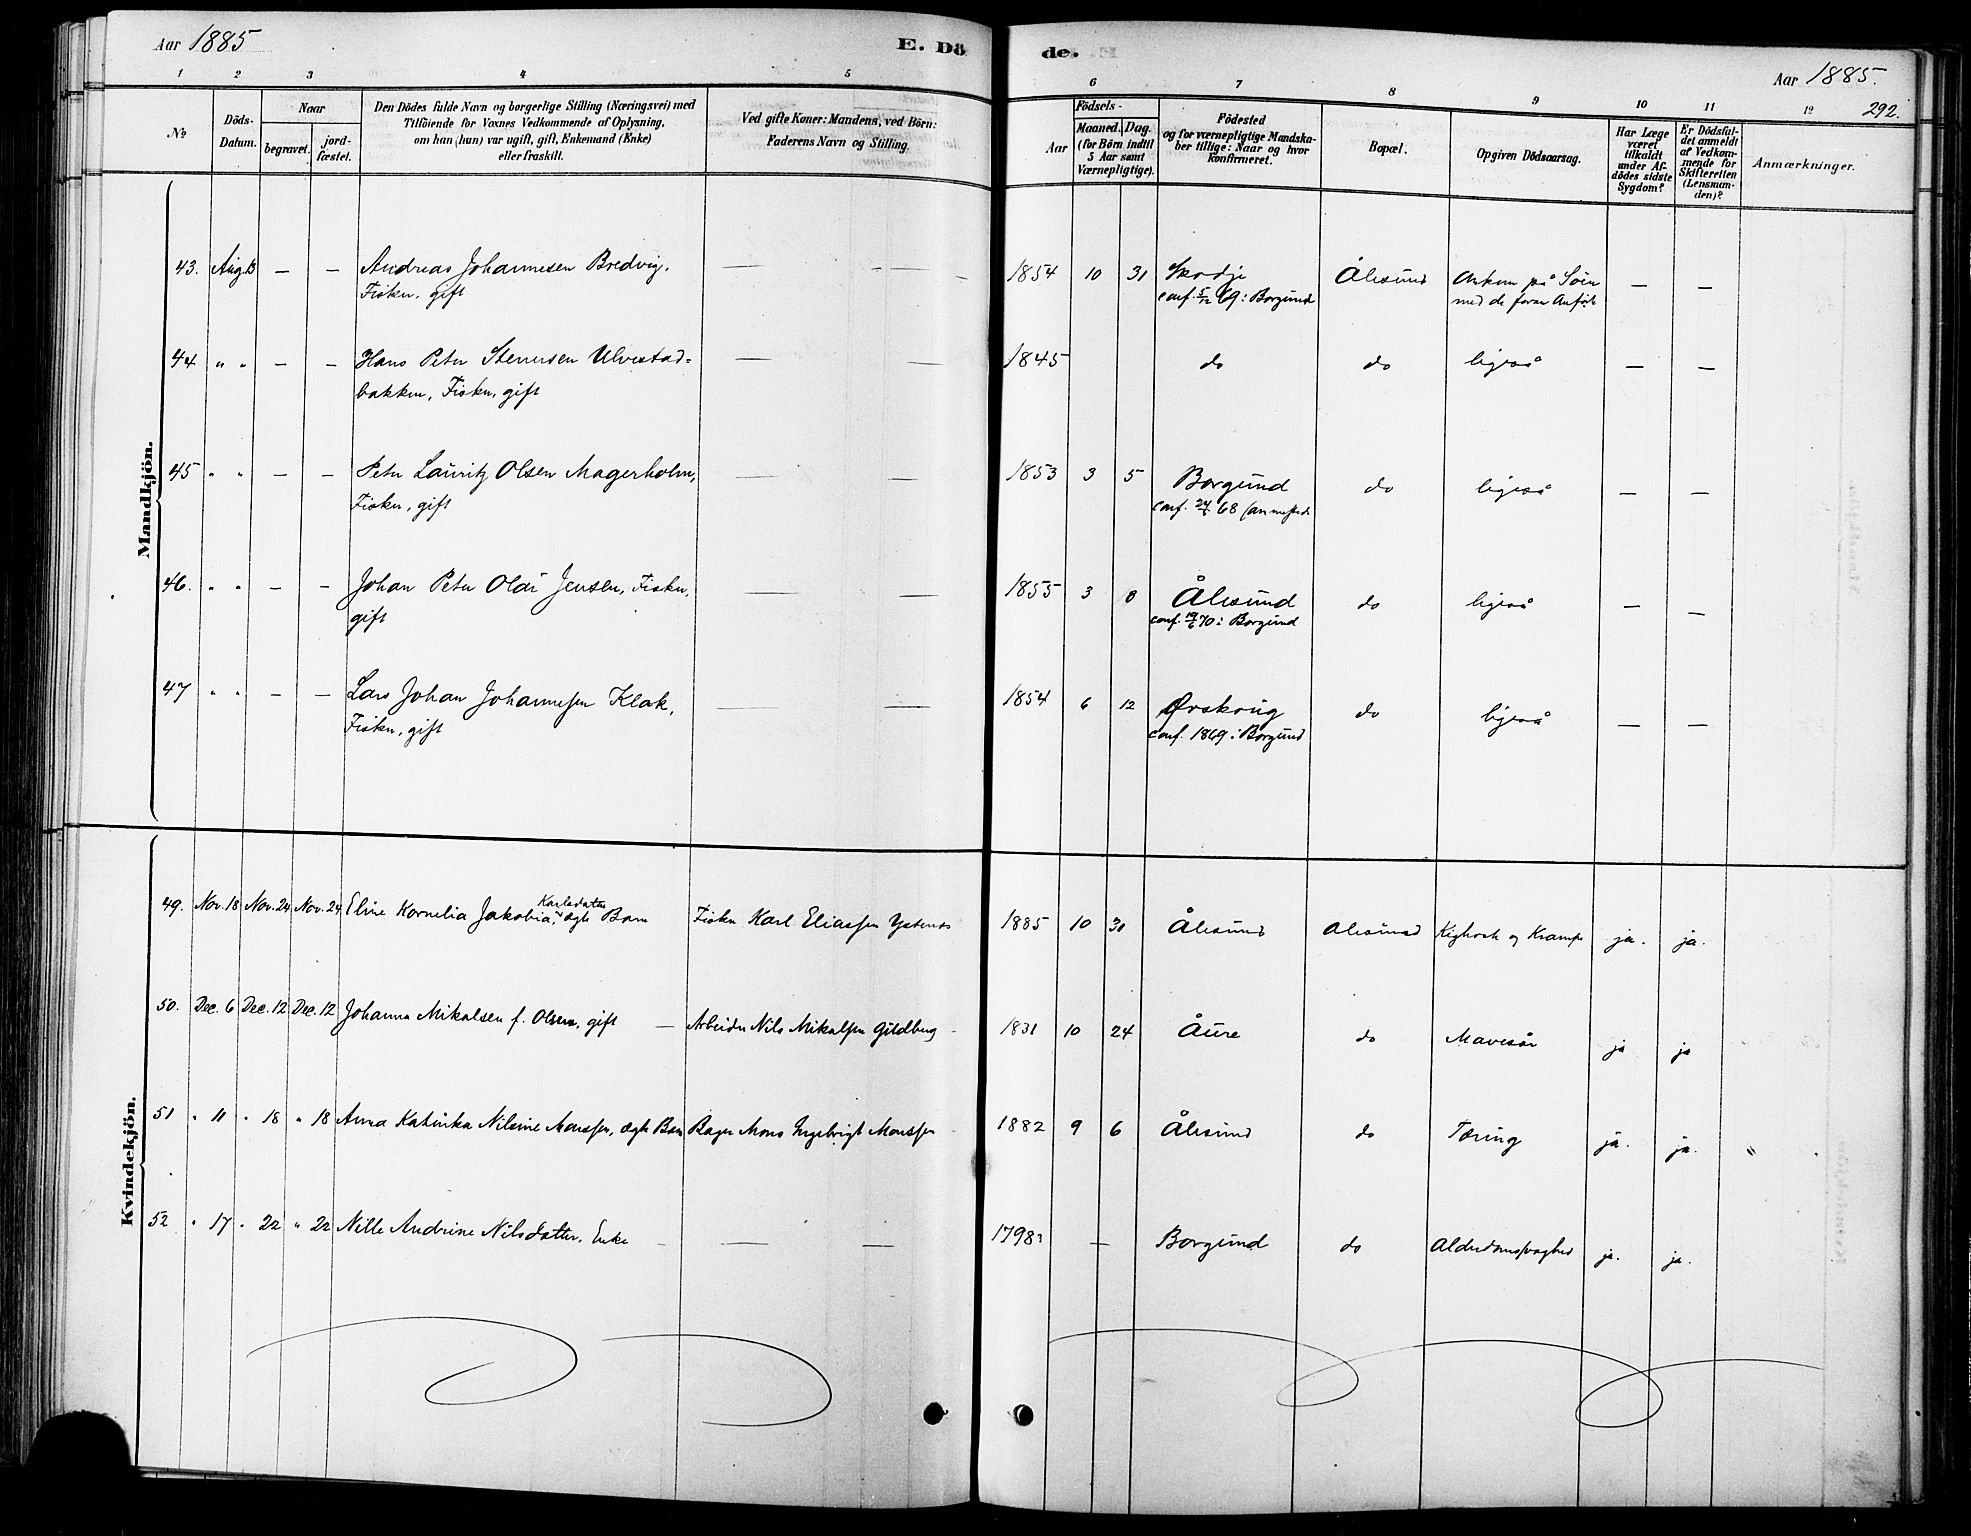 Aar 1885
E. Dö
de.
Aar 1885.
292.
1 2 3 4 5
6 7 8 9 10 11 12
No
Döds-
Datum.
Naar
begravet.
jord-
fæstet.
Den Dödes fulde Navn og borgerlige Stilling (Næringsvei) med
Tilföiende for Voxnes Vedkommende af Oplysning,
om han (hun) var ugift, gift, Enkemand (Enke)
eller fraskilt.
Ved gifte Koner: Mandens, ved Börn:
Faderens Navn og Stilling.
Födsels-
Aar
Maaned. Dag.
(for Börn indtil
5 Aar samt
Værnepligtige).
Födested
og for værnepligtige Mandska-
ber tillige: Naar og hvor
konfirmeret.
Bopæl.
Opgiven Dödsaarsag.
Har Læge
været
tilkaldt
under Af-
dödes sidste
Sygdom?
Er Dödsfal-
det anmeldt
af Vedkom-
mende for
Skifteretten
(Lensman-
den)?
Anmærkninger.
Mandkjön.
43. Aug. 13 — — Andreas Johannesen Bredvig, — — — 1854 10 31 Skodje Ålesund Omkom på Søen — —
Fisker, gift conf. 5/12 69 i Borgund med de foran Anførte
44 " " — — Hans Peter Stenersen Ulvestad= — — 1845 do do ligeså — —
bakken, Fisker, gift
45 " " — — Peter Lauritz Olsen Magerholm, — — 1853 3 5 Borgund do ligeså — —
Fisker, gift conf. 68 sammesteds
46. " " — — Johan Peter Olai Jensen, Fisker, — — 1855 3 8 Ålesund do ligeså — —
gift conf. 19/6 70 i Borgund
47 " " — — Lars Johan Johannesen Klak, — — 1854 6 12 Ørskoug do ligeså — —
Fisker, gift conf. 1869 i Borgund
Kvindekjön.
Karlsdatter
49. Nov. 18 Nov. 24 Nov. 24 Eline Kornelia Jakobia, ægte Barn Fisker Karl Eliassen Ystenes 1885 10 31 Ålesund Ålesund Kighoste og Krampe ja. ja.
50. Dec. 6 Dec. 12 Dec. 12 Johanna Mikalsen f. Olsen, gift — Arbeider Nils Mikalsen Gildberg 1831 10 24 Aure do Mavesår ja ja
51 " 11 " 18 " 18 Anna Katinka Nilsine Monssen, ægte Barn Bager Mons Ingebrigt Monssen 1882 9 6 Ålesund do Tæring ja. ja. "
52 " 17 " 22 " 22 Nille Andrine Nilsdatter, Enke — — — 1798? — Borgund do Alderdomssvaghed ja. ja.